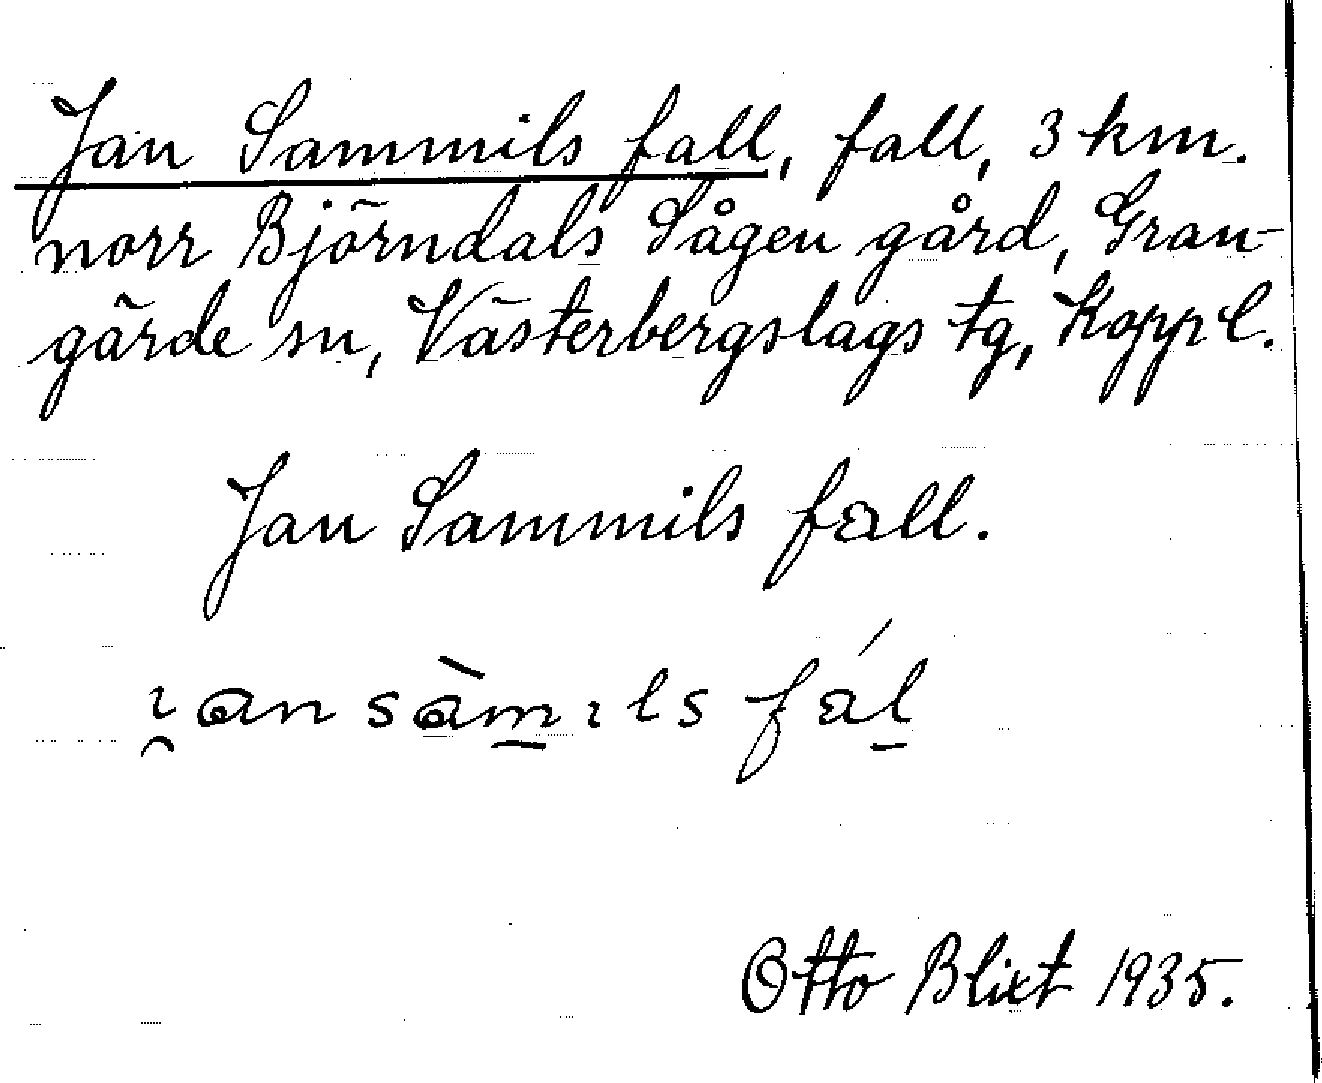 Jan Sammils fall, fall, 3 km.
norr Björndals Sågen gård, Gran-
gärde sn, Västerbergslags tg, Kopp l.
Jan Sammils fall.
ı̯an sàm̲ıls fál̲
Otto Blixt 1935.